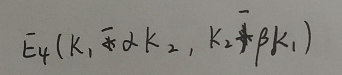 E₄(K₁ ⊼ αK₂, K₂ ⊼ βK₁)